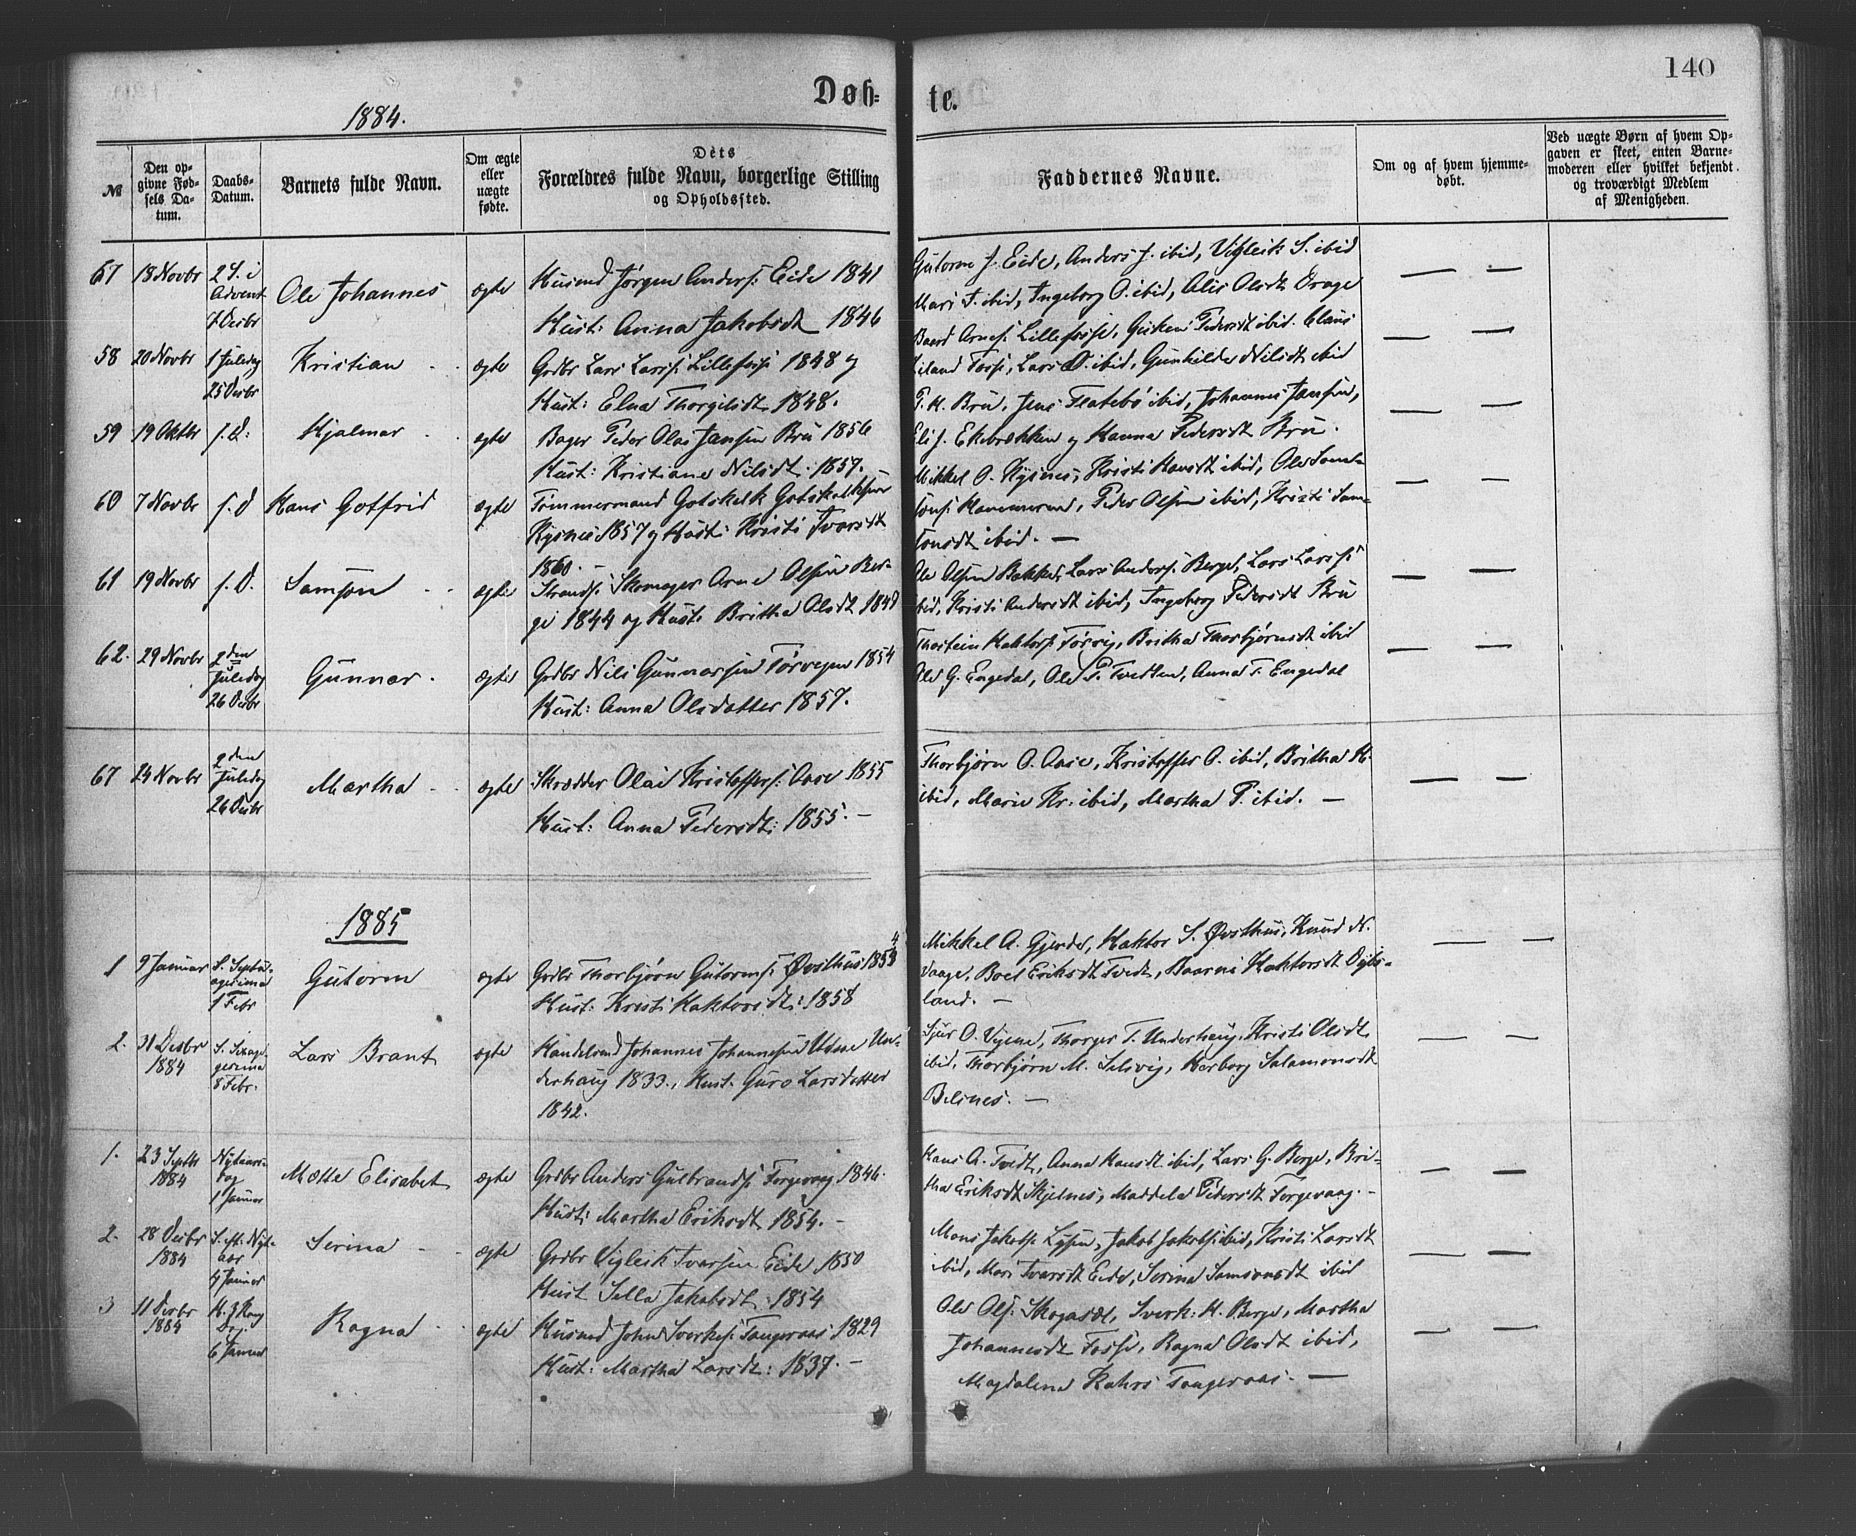 140
Døb=
te.
1884.
№
Den op-
givne Fød-
sels Da-
tum.
Daabs-
Datum.
Barnets fulde Navn.
Om ægte
eller
uægte
fødte.
Dets
Forældres fulde Navn, borgerlige Stilling
og Opholdssted.
Faddernes Navne.
Om og af hvem hjemme-
døbt.
Ved uægte Børn af hvem Op-
gaven er skeet, enten Barne-
moderen eller hvilket bekjendt
og troværdigt Medlem
af Menigheden.
67 18 Novbr 2 S. i Advent 7 Desbr Ole Johannes ægte
Husmd Jørgen Anders: Eide 1841
Hust: Anna Jakobsdt 1846
Gutorm J. Eide, Anders J. ibid, Vigleik S. ibid
Mari T. ibid, Ingeborg O. ibid, Alis Olsdt Drage
58 20 Novbr 1 Juledag 25 Desbr Kristian ægte
Grdbr Lars Larss: Lillefosse 1848 og
Hust: Elna Thorgilsdt 1848.
Baard Arnes: Lillefosse, Pedersdt ibid. Claus
Fosse, Lars O. ibid, Gunhilde Nilsdt ibid
59 19 Oktbr s. D. Hjalmar ægte
Bager Peder Olai Jansen Bru 1856
Hust: Kristiane Nilsdt: 1857.
P. H. Bru, Jens Flatebø ibid, Johannes Jansen,
Eli J. Ekebrækken og Hanna Pedersdt Bru.
60 7 Novbr s. D Hans Gotfrid ægte
Tømmermand Gotskalk Gotskalksen
Rysnes 1857 og Hust: Kristi Ivarsdt
1860. –
Mikkel O. Rysnes, Kristi Hansdt ibid, Ole Sam-
sons: Hammeren, Peder Olsen ibid, Kristi Sam-
sonsdt ibid. –
61 19 Novbr s. D. Samson ægte
Strands: Skomager Arne Olsen Ber-
ge 1844 og Hust: Britha Olsdt
Ole Olsen Bakke, Lars Anders: Berge, Lars Larss:
ibid, Kristi Andersdt ibid, Ingeborg Pedersdt Bru
62. 29 Novbr 2den Juledag 26 Desbr Gunnar ægte
Grdbr Nils Gunnarsen Tørvigen 1854
Hust: Anna Olsdatter 1857.
Thostein Haktors: Tørvig, Britha Thorbjørnsdt ibid
Ole G. Engedal, Ole P. Tvedten, Anna T. Engedal
67 24 Novbr 2den Juledag 26 Desbr Martha ægte
Skrædder Olai Kristoffers: Aase 1855
Hust: Anna Pedersdt: 1855. –
Thorbjørn O. Aase, Kristoffer O. ibid, Britha K.
ibid, Marie Kr. ibid, Martha P. ibid. –
1885
1 9 Januar S. Septua- gesima 1 Febr Gutorm ægte
Grdbr Thorbjørn Gutorms: Østhus 1853 4
Hust: Kristi Haktorsdt: 1858
Mikkel A. Gjerde, Haktor S. Østhus, Knud N.
Vaage, Boel Eriksdt Tvedt, Baarni Haktorsdt Oybs-
land. –
2. 31 Desbr 1884 S. Sexage- gesima 8 Febr. Lars Brant ægte
Handelsmd Johannes Johannesen Un-
derhaug 1833., Hust. Guro Larsdatter
1842.
Sjur O. Vigene, Thorger T. Underhaug, Kristi Olsdt
ibid, Thorbjørn M. Selsvig, Herborg Salamonsdt
Belsnes. –
1. 23 Septbr 1884 Nytaars- dag 1 Januar Mette Elisabet ægte
Grdbr Anders Gulbrands: Torgevaag 1846.
Hust: Martha Eriksdt 1854. –
Hans A. Tvedt, Anna Hansdt ibid, Lars G. Berge, Bri-
tha Eriksdt Skjelnes, Maddela Pedersdt Torgevaag. –
2. 28 Desbr 1884 S. eft. Nyt- aar 4 Januar Serina ægte
Grdbr Vigleik Ivarsen Eide 1850
Hust Silla Jakobsdt: 1854
Mons Jakobs: Lysen, Jakob Jakobs: ibid, Kristi Larsdt
ibid, Mari Ivarsdt Eide, Serina Samsonsdt ibid
3 11 Desbr 1884 H. 3 Kong Dag 6 Januar Ragna ægte
Husmd John Sverkes: Tangeraas 1829
Hust: Martha Larsdt: 1837. –
Ole Ols: Skogasæt, Sverk: H. Berge, Martha
Johannesdt Fosse, Ragna Olsdt ibid,
Magdalena Kahrs Tangeraas. –